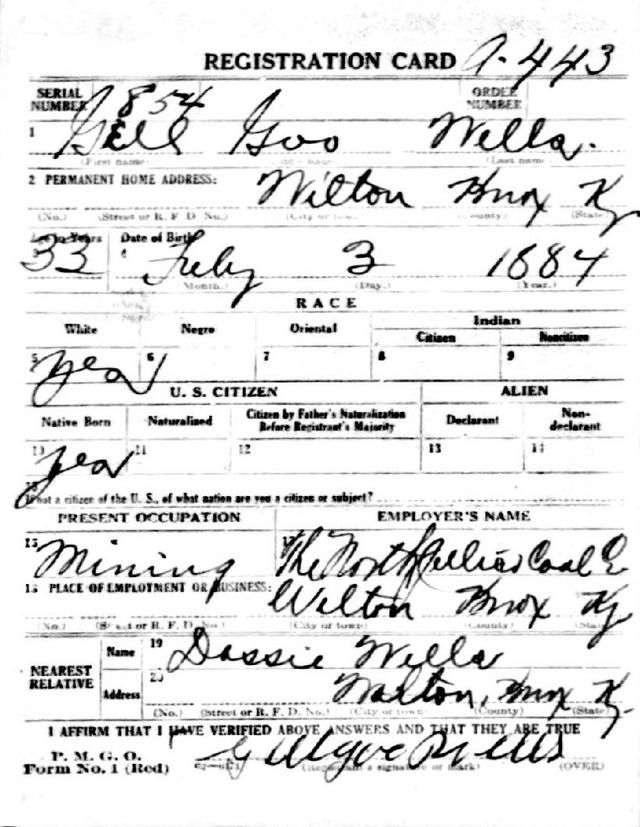 REGISTRATION CARD A-443
SERIAL NUMBER 854 ORDER NUMBER
1 Gill Goo Wells.
(First name) (Last name)
2 PERMANENT HOME ADDRESS: Wilton Knox Ky
(No.) (Street or R. F. D. No.) (City or town) (County) (State)
Age in Years Date of Birth
33 July 3 1884
(Month.) (Day.) (Year.)
RACE
White Negro Oriental Indian
Citizen Noncitizen
5 yes 6 7 8 9
U. S. CITIZEN ALIEN
Native Born Naturalized Citizen by Father's Naturalization Before Registrant's Majority Declarant Non-declarant
10 yes 11 12 13 14
15
If not a citizen of the U. S., of what nation are you a citizen or subject?
PRESENT OCCUPATION EMPLOYER'S NAME
Mining 17 The North Jellico Coal
PLACE OF EMPLOYMENT OR BUSINESS: Wilton Knox Ky
(No.) (Street or R. F. D. No.) (City or town) (County) (State)
NEAREST RELATIVE Name 19 Dassie Wells
Address 20 Walton, Knox Ky.
(No.) (Street or R. F. D. No.) (City or town) (County) (State)
I AFFIRM THAT I HAVE VERIFIED ABOVE ANSWERS AND THAT THEY ARE TRUE
P. M. G. O.
Form No. 1 (Red) Gillgoe Wells
(Registrant's signature or mark) (OVER)